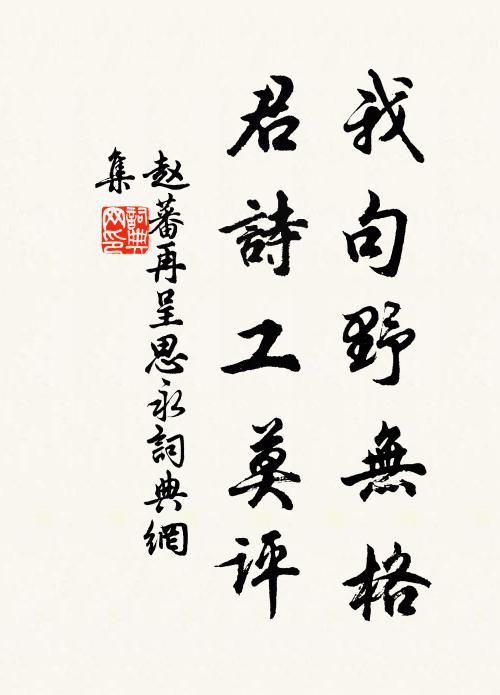 我句野無格
君詩工莫评
赵蕃再呈思永詞典網
集
詞典
网印